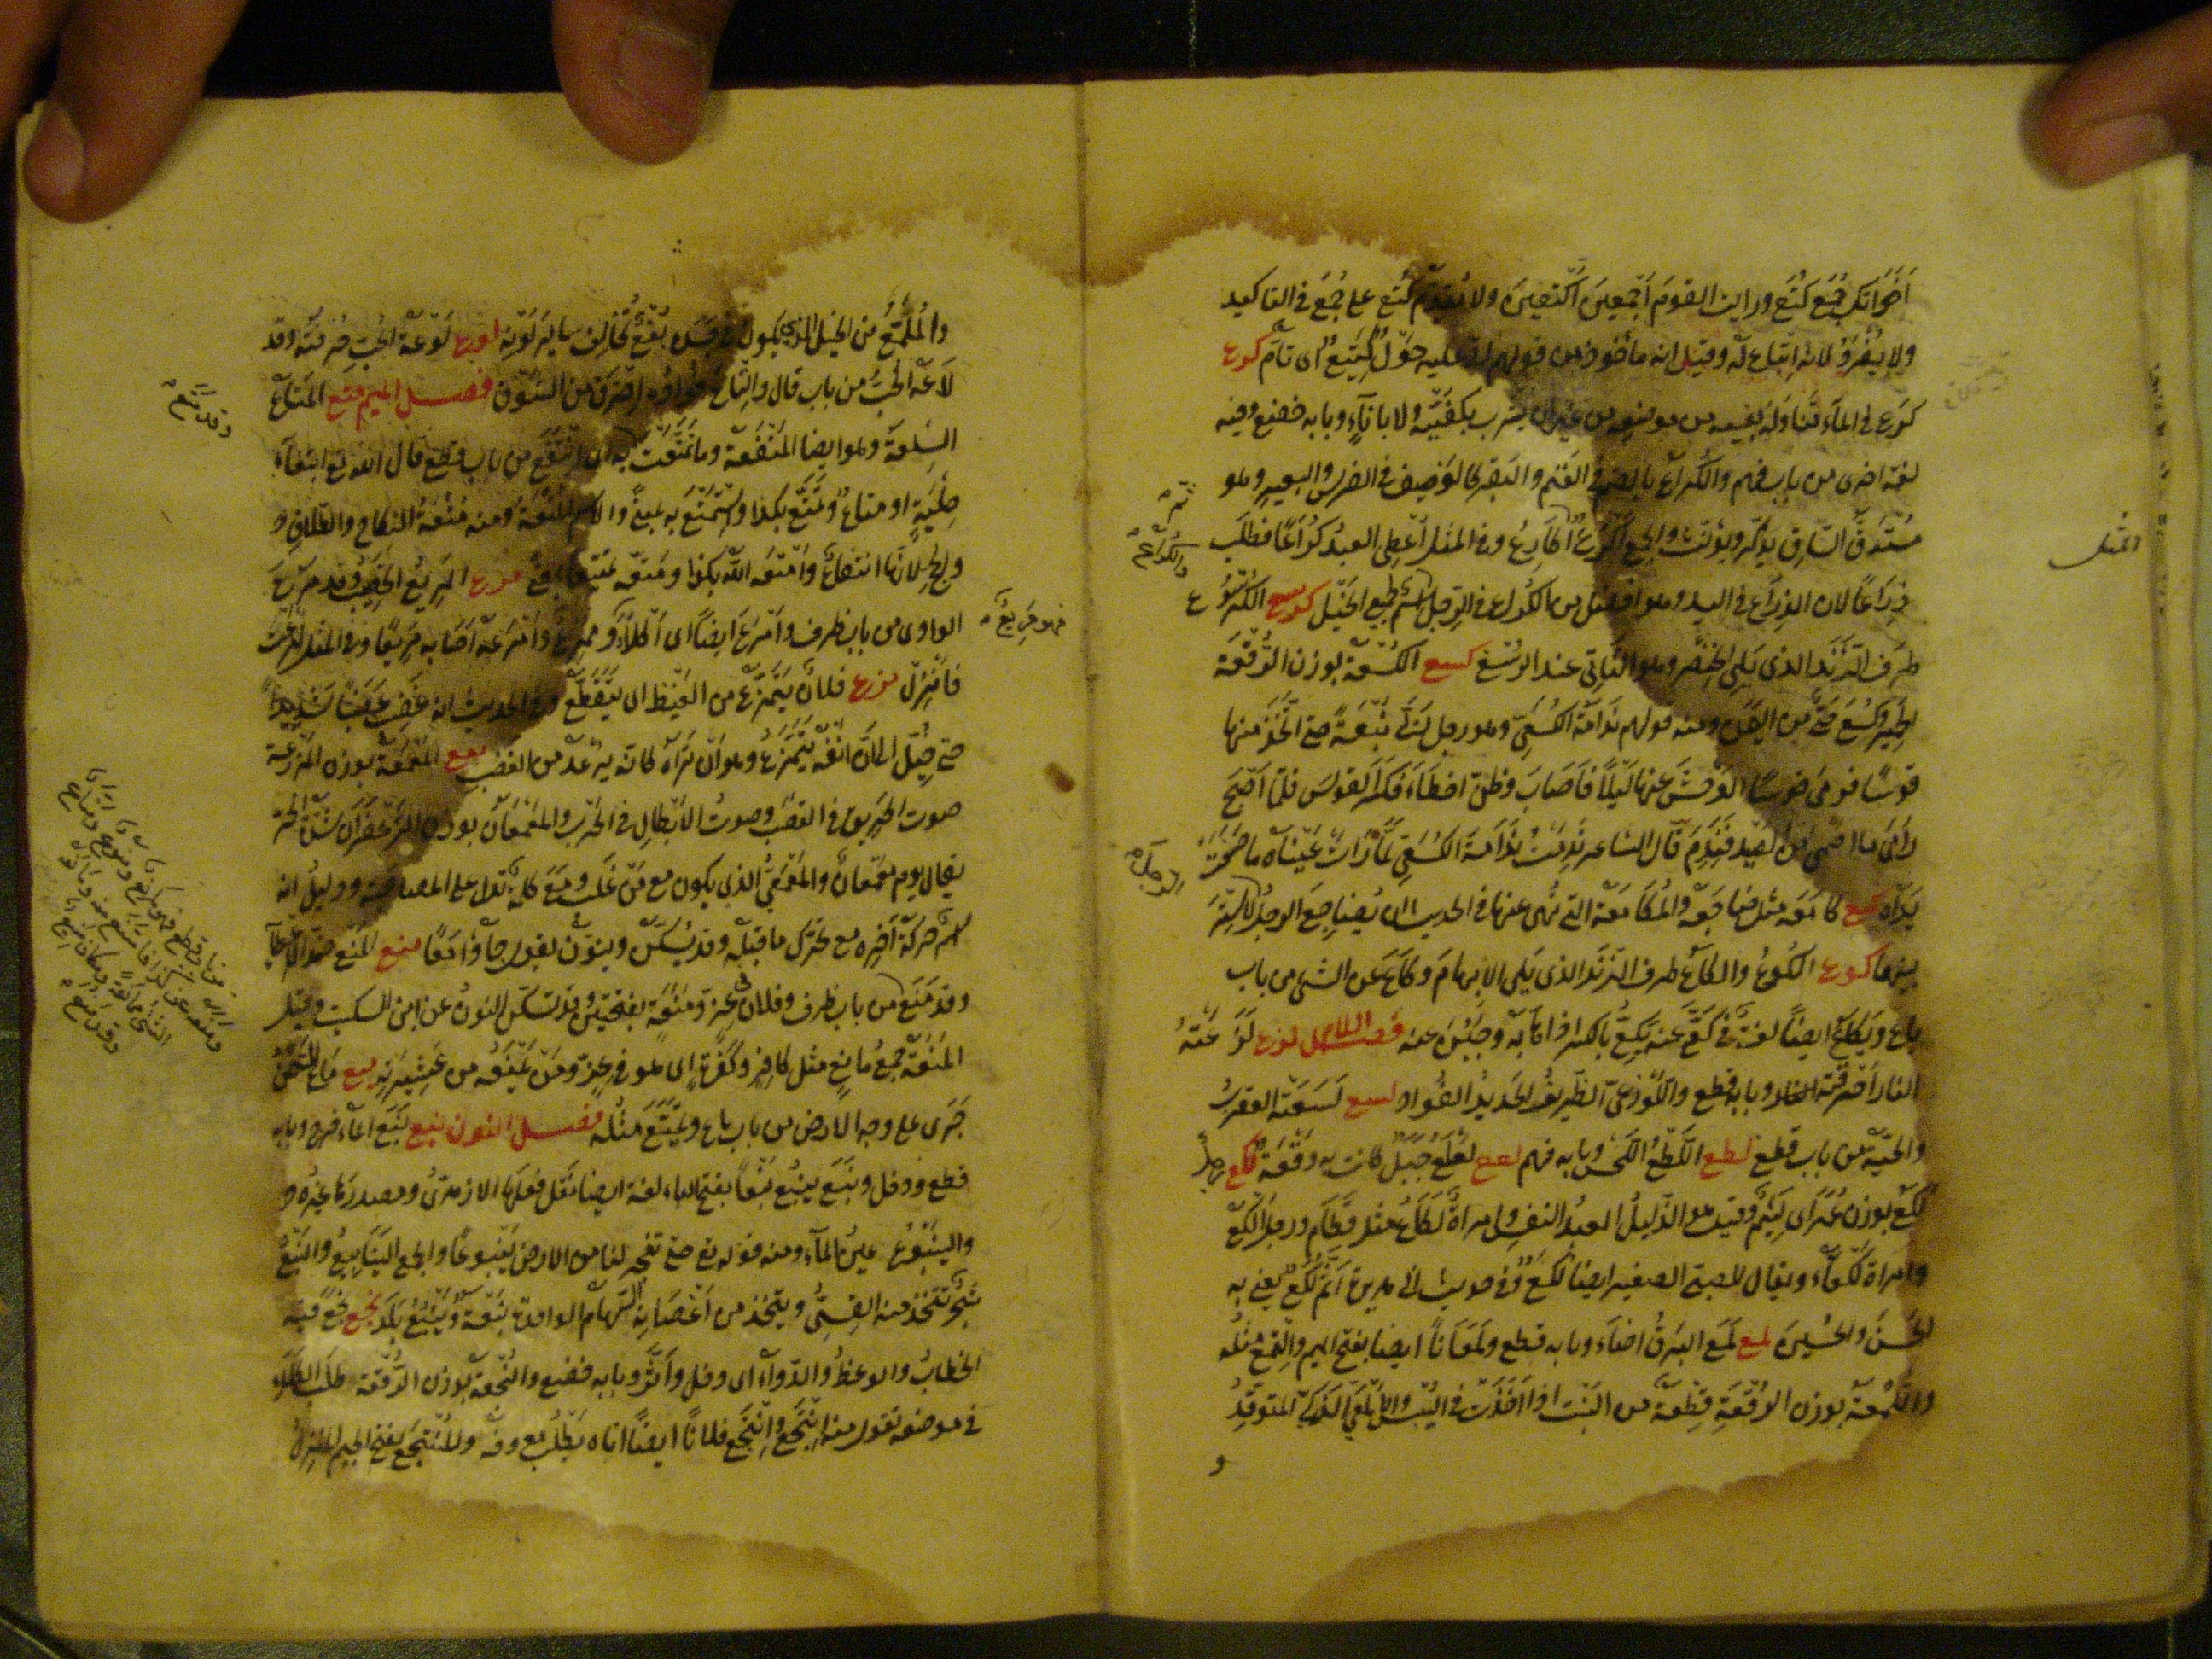 أخواتك جمع كتع ورأيت القوم أجمعين أكتعين ولا يقدم كتع على جمع في التاكيد
ولا يفرد لانه إتباع له وقيل انه مأخوذ من قولهم اتى عليه حول كتيع اى تام كرع
كرع في الماء تناوله بفيه من موضعه من غير ان يشرب بكفيه ولا باناء وبابه خضع وفيه
لغة اخرى من باب فهم والكراع بالضم في الغنم والبقر كالوظيف في الفرس والبعير وهو
مستدق الساق يذكر ويؤنث والجمع اكرع ثم اكارع وفي المثل أعطي العبد كراعا فطلب
ذراعا لان الذراع في اليد وهو افضل من الكراع في الرجل والكراع اسم يجمع الخيل كرسع الكرسوع
طرف الزند الذى يلي الخنصر وهو الناتئ عند الرسغ كسع الكسعة بوزن الرقعة
الحمير وكسع حي من اليمن ومنه قولهم ندامة الكسعي وهو رجل ربى نبعة حتى اتخذ منها
قوسا فرمى الوحش عنها ليلا فأصاب وظن انه اخطأ فكسر القوس فلما اصبح
رأى ما اصمى من الصيد فندم قال الشاعر ندمت ندامة الكسعي لما رأت عيناه ما صنعت
يداه كمع كامعه مثل ضاجعه والمكامعة التي نهى عنها في الحديث ان يضاجع الرجل الرجل لا ستر
بينهما كوع الكوع والكاع طرف الزند الذى يلي الابهام وكاع عن الشئ من باب
باع ويكاع ايضا لغة في كع عنه يكع بالكسر اذا هابه وجبن عنه فصل اللام لذع لذعته
النار احرقته وبابه قطع واللوذعي الظريف الحديد الفؤاد لسع لسعته العقرب
والحية من باب قطع لطع اللطع اللحس وبابه فهم لعع لعلع جبل كانت به وقعة لكع رجل
لكع بوزن عمر اى لئيم وقيل هو الذليل العبد النفس وامرأة لكاع مثل قطام ورجل ألكع
وامرأة لكعاء ويقال للصبي الصغير ايضا لكع وفي حديث أبي هريرة أثم لكع يعني به
الحسن والحسين لمع لمع البرق اضاء وبابه قطع ولمعانا ايضا بفتح الميم والتمع مثله
واللمعة بوزن الرقعة قطعة من النبت اذا اخذت في اليبس والالمعي الذكي المتوقد
المثل
والملمع من الخيل الذي يكون في جسده بقع تخالف سائر لونه لوع لوعة الحب حرقته وقد
لاعه الحب من باب قال والتاع فؤاده احترق من الشوق فصل الميم متع المتاع
السلعة وهو ايضا المنفعة وما تمتعت به وقد متع به اى انتفع من باب قطع قال الله تع ابتغاء
حلية او متاع وتمتع بكذا واستمتع به بمعنى والاسم المتعة ومنه متعة النكاح والطلاق و
والحج لانها انتفاع وأمتعه الله بكذا ومتعه تمتيعا بمعنى مرع المريع الخصيب وقد مرع
الوادى من باب ظرف وأمرع ايضا اى اكلأ فهو ممرع وأمرعه اصابه مريعا وفي المثل امرعت
فانزل مزع فلان يتمزع من الغيظ اى يتقطع وفي الحديث انه غضب غضبا شديدا
حتى خيل الي ان انفه يتمزع وهو ان تراه كانه يرعد من الغضب معع المعمعة بوزن المزرعة
صوت الحريق في القصب وصوت الابطال في الحرب والمعمعان بوزن الزعفران شدة الحر
يقال يوم معمعان والمعمعي الذى يكون مع من غلب ومع كلمة تدل على المصاحبة ودليل انه
اسم حركة آخره مع تحرك ما قبله وقد يسكن وينون يقول جاؤا معا منع المنع ضد الاعطاء
وقد منع من باب ظرف وفلان في عز ومنعة بفتحتين وقد تسكن النون عن ابن السكيت وقيل
المنعة جمع مانع مثل كافر وكفرة اى هو في عز ومن يمنعه من عشيرته ميع ماع السمن
جرى على وجه الارض من باب باع وتميع مثله فصل النون نبع نبع الماء خرج وبابه
قطع ودخل ونبع ينبع نبعا بفتح الباء لغة ايضا نقل فعلها الازهري ومصدرها غيره و
والينبوع عين الماء ومنه قوله تع حتى تفجر لنا من الارض ينبوعا والجمع الينابيع والنبع
شجر تتخذ منه القسي ويتخذ من اغصانه السهام الواحدة نبعة وينبع بلد نجع نجع فيه
الخطاب والوعظ والدواء اى دخل وأثر وبابه خضع والنجعة بوزن الرقعة طلب الكلاء
في موضعه تقول منه انتجع وانتجع فلانا ايضا اتاه يطلب معروفه والمنتجع بفتح الجيم المنزل
وقد متع
فهو مريع